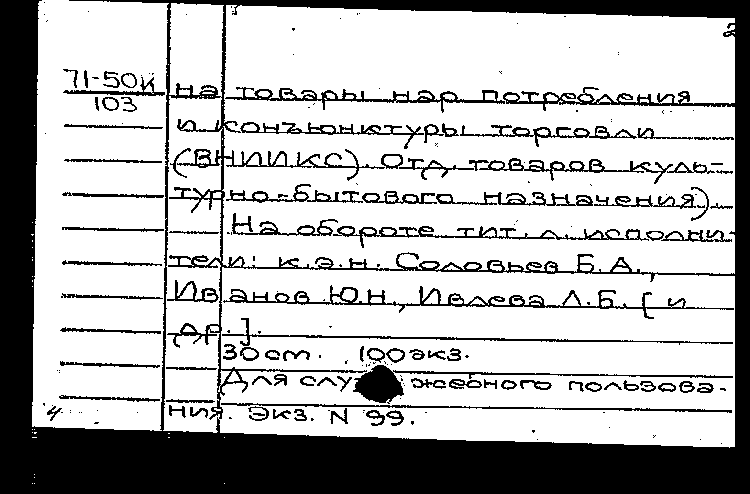 2
71-50К на товары нар потребления
103
и конъюнктуры торговли
(ВНИИКС). Отд. товаров куль-
турно-бытового назначения).
На обороте тит. л. исполни-
тели: к.э.н. Соловьев Б.А.,
Иванов Ю.Н., Ивлева Л.Б. [и
др.].
30 см. 100 экз.
Для служебного пользова-
ния. Экз. N 99.
4